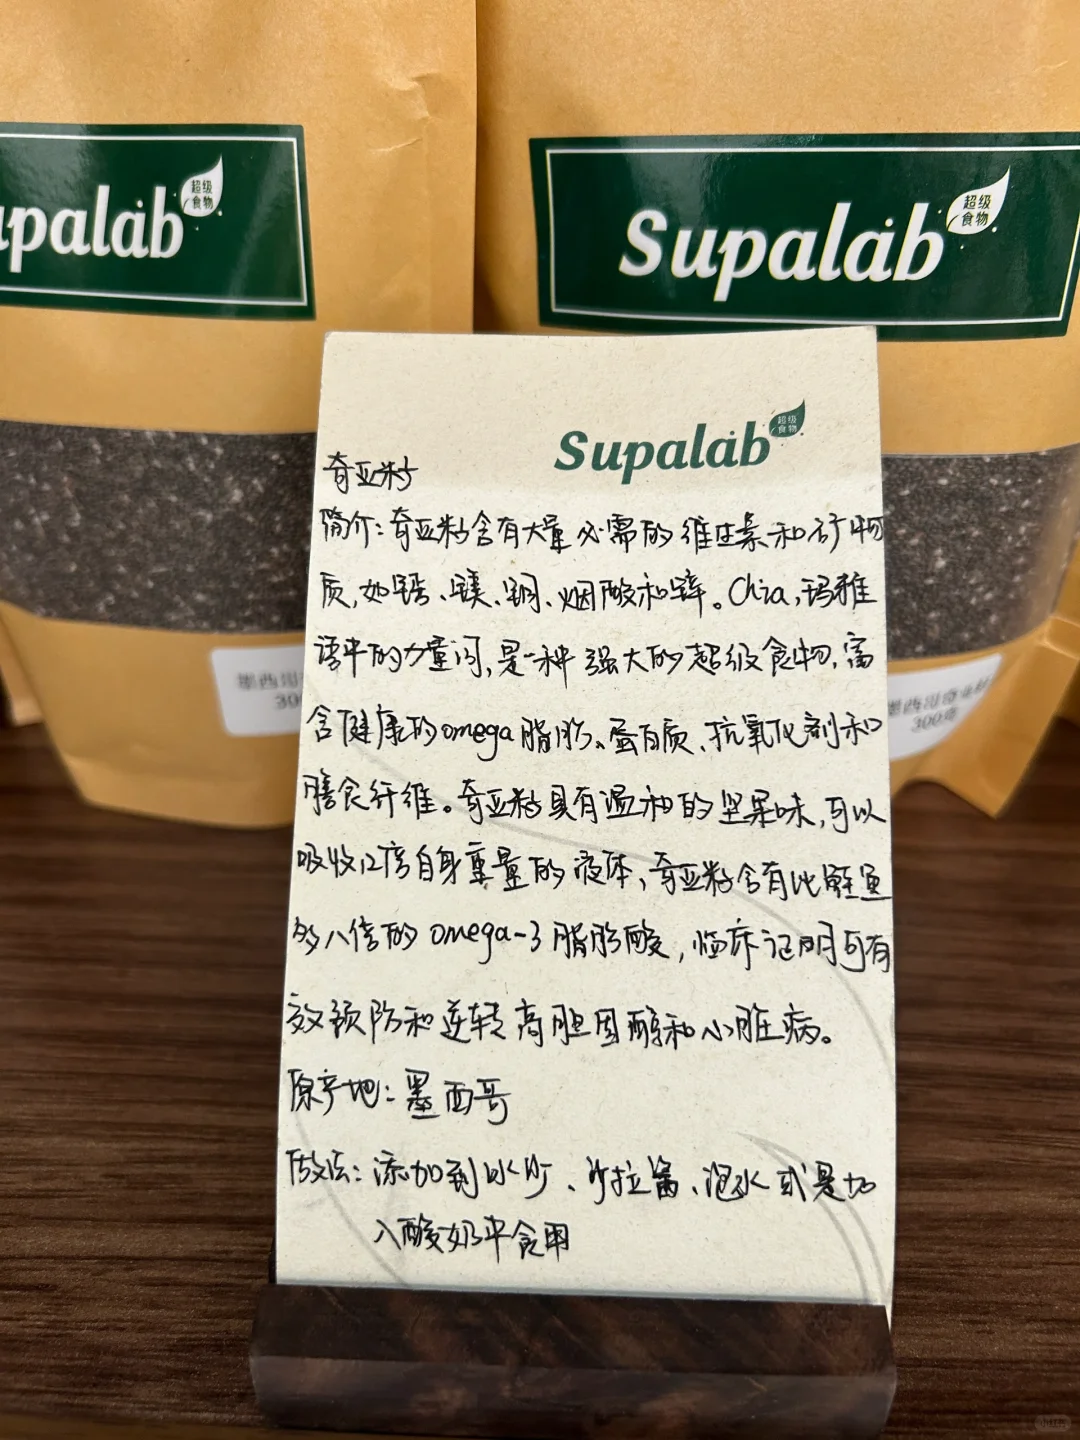 upalab
超级
食物
Supalab
超级
食物
Supalab
超级
食物
奇亚籽
简介：奇亚籽含有大量必需的维生素和矿物
质，如锰、镁、铜、烟酸和锌。Chia，玛雅
语中的力量词，是一种强大的超级食物，富
含健康的omega脂肪、蛋白质、抗氧化剂和
膳食纤维。奇亚籽具有温和的坚果味，可以
吸收12倍自身重量的液体，奇亚籽含有比鲑鱼
多八倍的omega-3脂肪酸，临床证明可有
效预防和逆转高胆固醇和心脏病。
原产地：墨西哥
做法：添加到冰沙、沙拉酱、泡水或是加
入酸奶中食用
墨西哥
30
墨西哥奇亚籽
300克